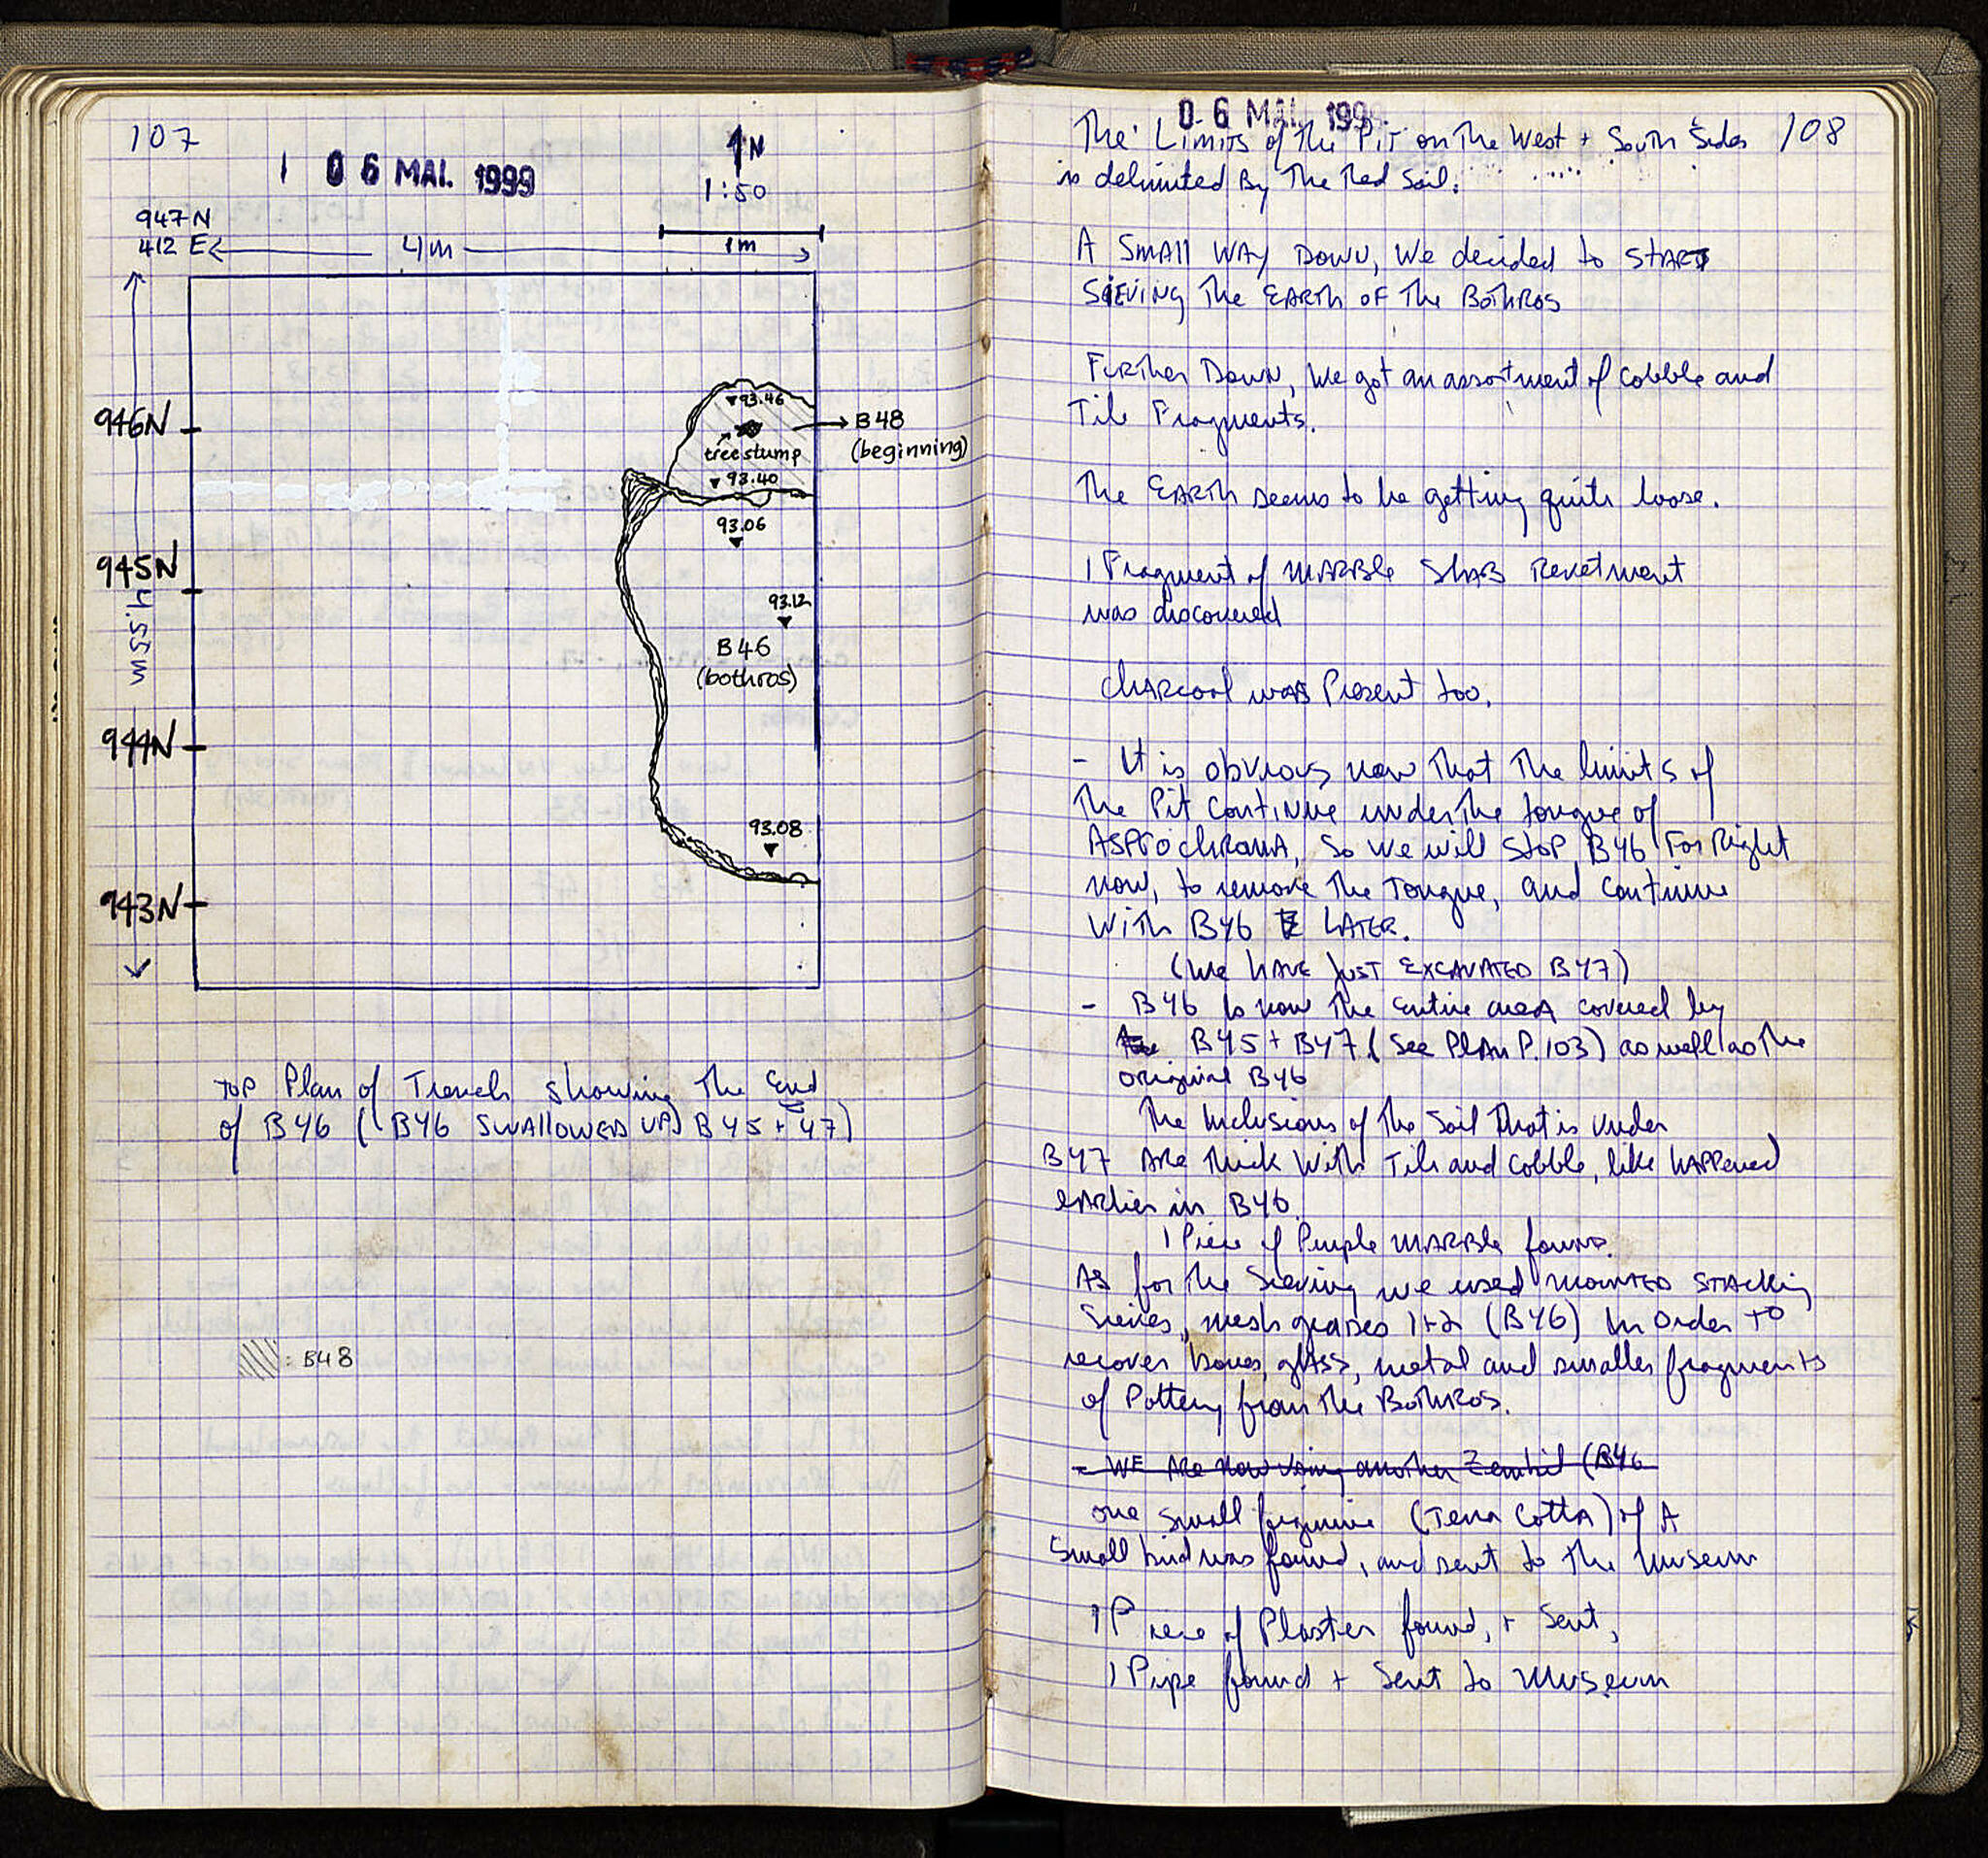 107
1 06 MAI. 1999
N
1:50
947 N
412 E
4m
1m
946N
93.46
B48
(beginning)
tree stump
93.40
93.06
945N
4,55m
93.12
B46
(bothros)
944N
93.08
943N
Top Plan of Trench showing The End
of B46 (B46 SWAllOWED UP B45 + 47)
: B48
06 MAI. 1999
The Limits of The Pit on The West + South Sides 108
is delimited By The Red Soil.
A SMAll WAY DOWN, We decided to START
SIEVING The EARTh OF The BOThROS
Further Down, We got an assortment of cobble and
Tile Fragments.
The EARTh seems to be getting quite loose.
1 Fragment of MARBle SlAB Revetment
was discovered
ChARcoal was Present too.
- It is obvious now That The limits of
The Pit Continue under The tongue of
ASPROChROMA, So We will Stop B46 For Right
now, to remove The Tongue, and continue
With B46 LATER.
(We HAVE JUST EXCAVATED B47)
- B46 Is now The Entire AreA covered by
B45 + B47 (See PlAn P. 103) as well as The
original B46
The Inclusions of The Soil That is under
B47 ARe thick With Tile and Cobble, like hAPPened
eARlier in B46.
1 Piece of Purple MARBle found.
AS for The Sieving we used MOUNTED STACKing
Sieves, mesh grades 1+2 (B46) In Order TO
recover bones, glASS, metal and smaller fragments
of Pottery from The BOThROS.
- WE ARe now Using another Zembil (B46
one small figurine (Terra CottA) of A
Small bird was found, and sent to The Museum
1 Piece of Plaster found, + Sent,
1 Pipe found + Sent to Museum